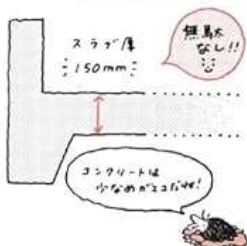 スラブ厚
150mm
無駄
なし!!
コンクリートは
少なめがエコだね!